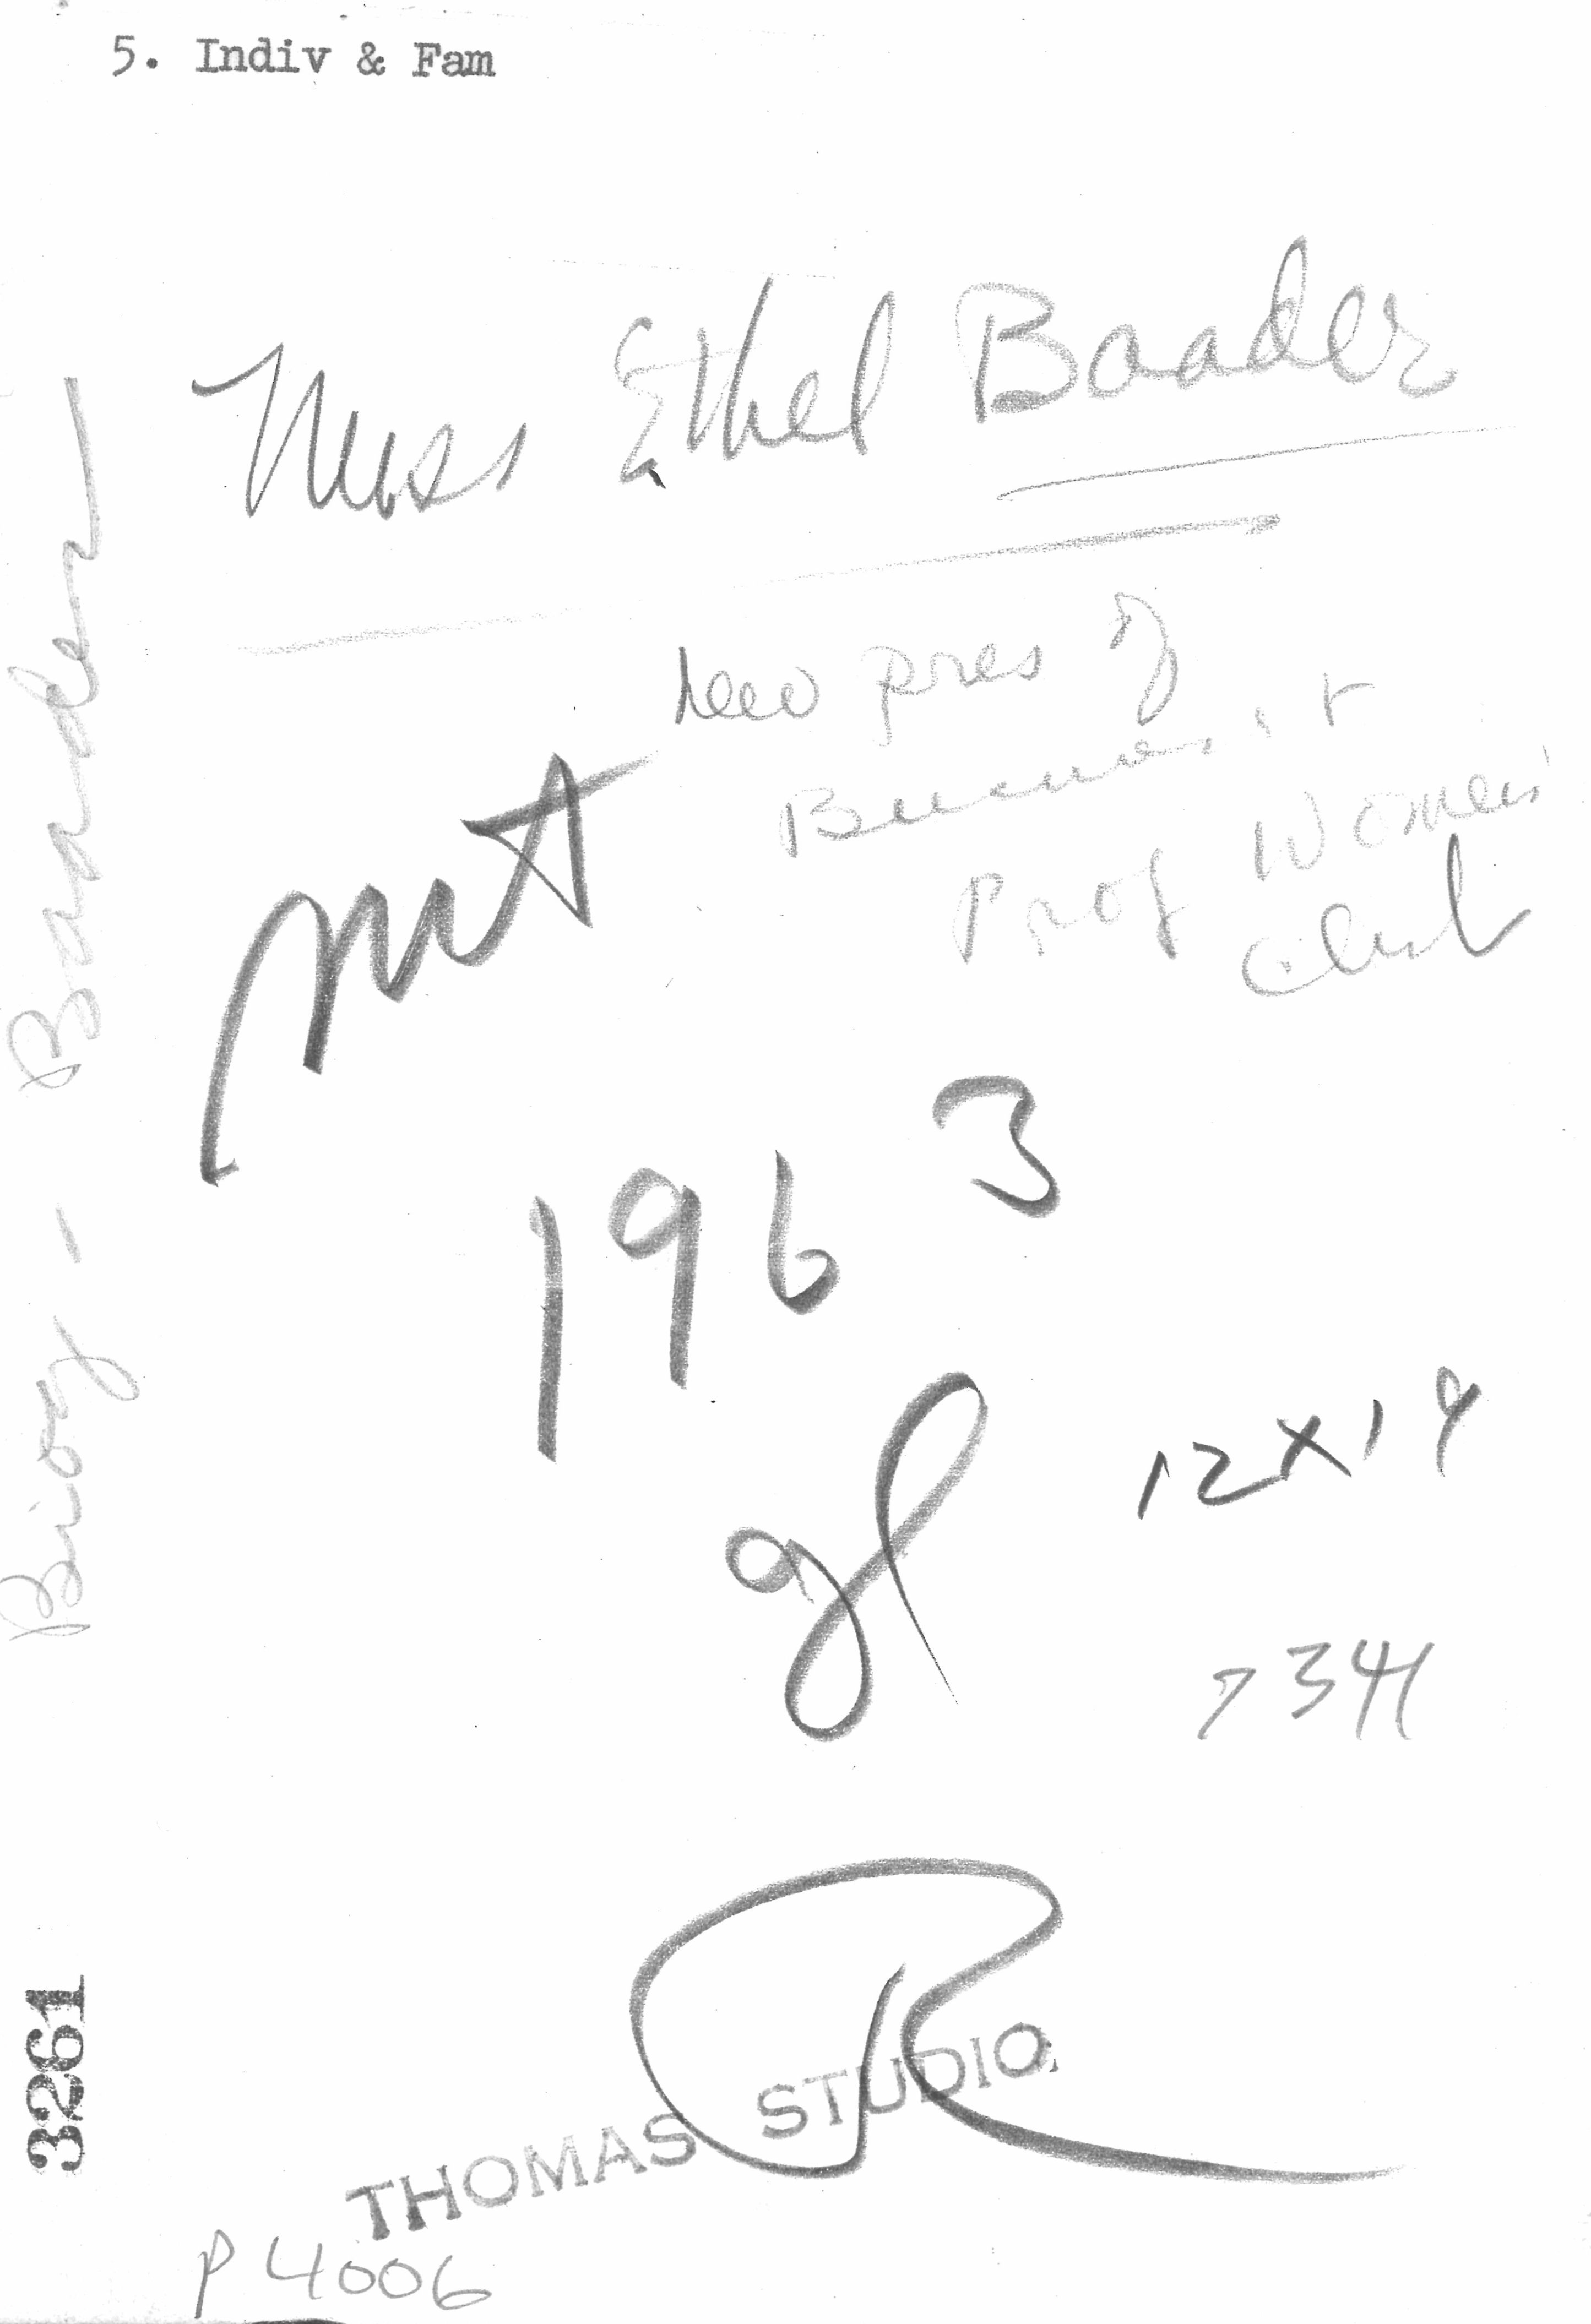 5. Indiv & Fam
Miss Ethel Baader
new pres of
Business &
Prof Women's
Club
1963
gl
12x14
7341
R
THOMAS STUDIO
P4006
Biog - Baader
3261